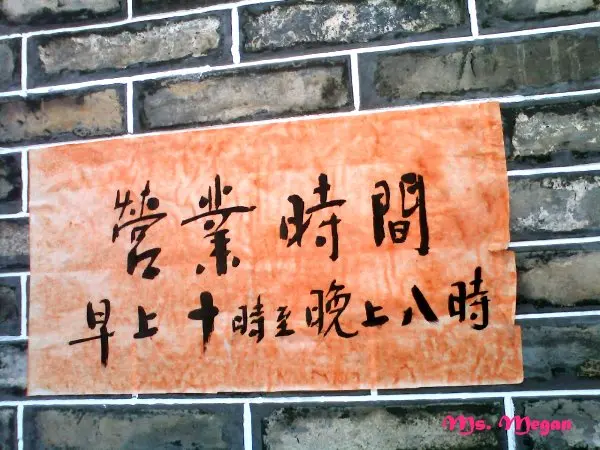 營業時間
早上十時至晚上八時
Ms. Megan